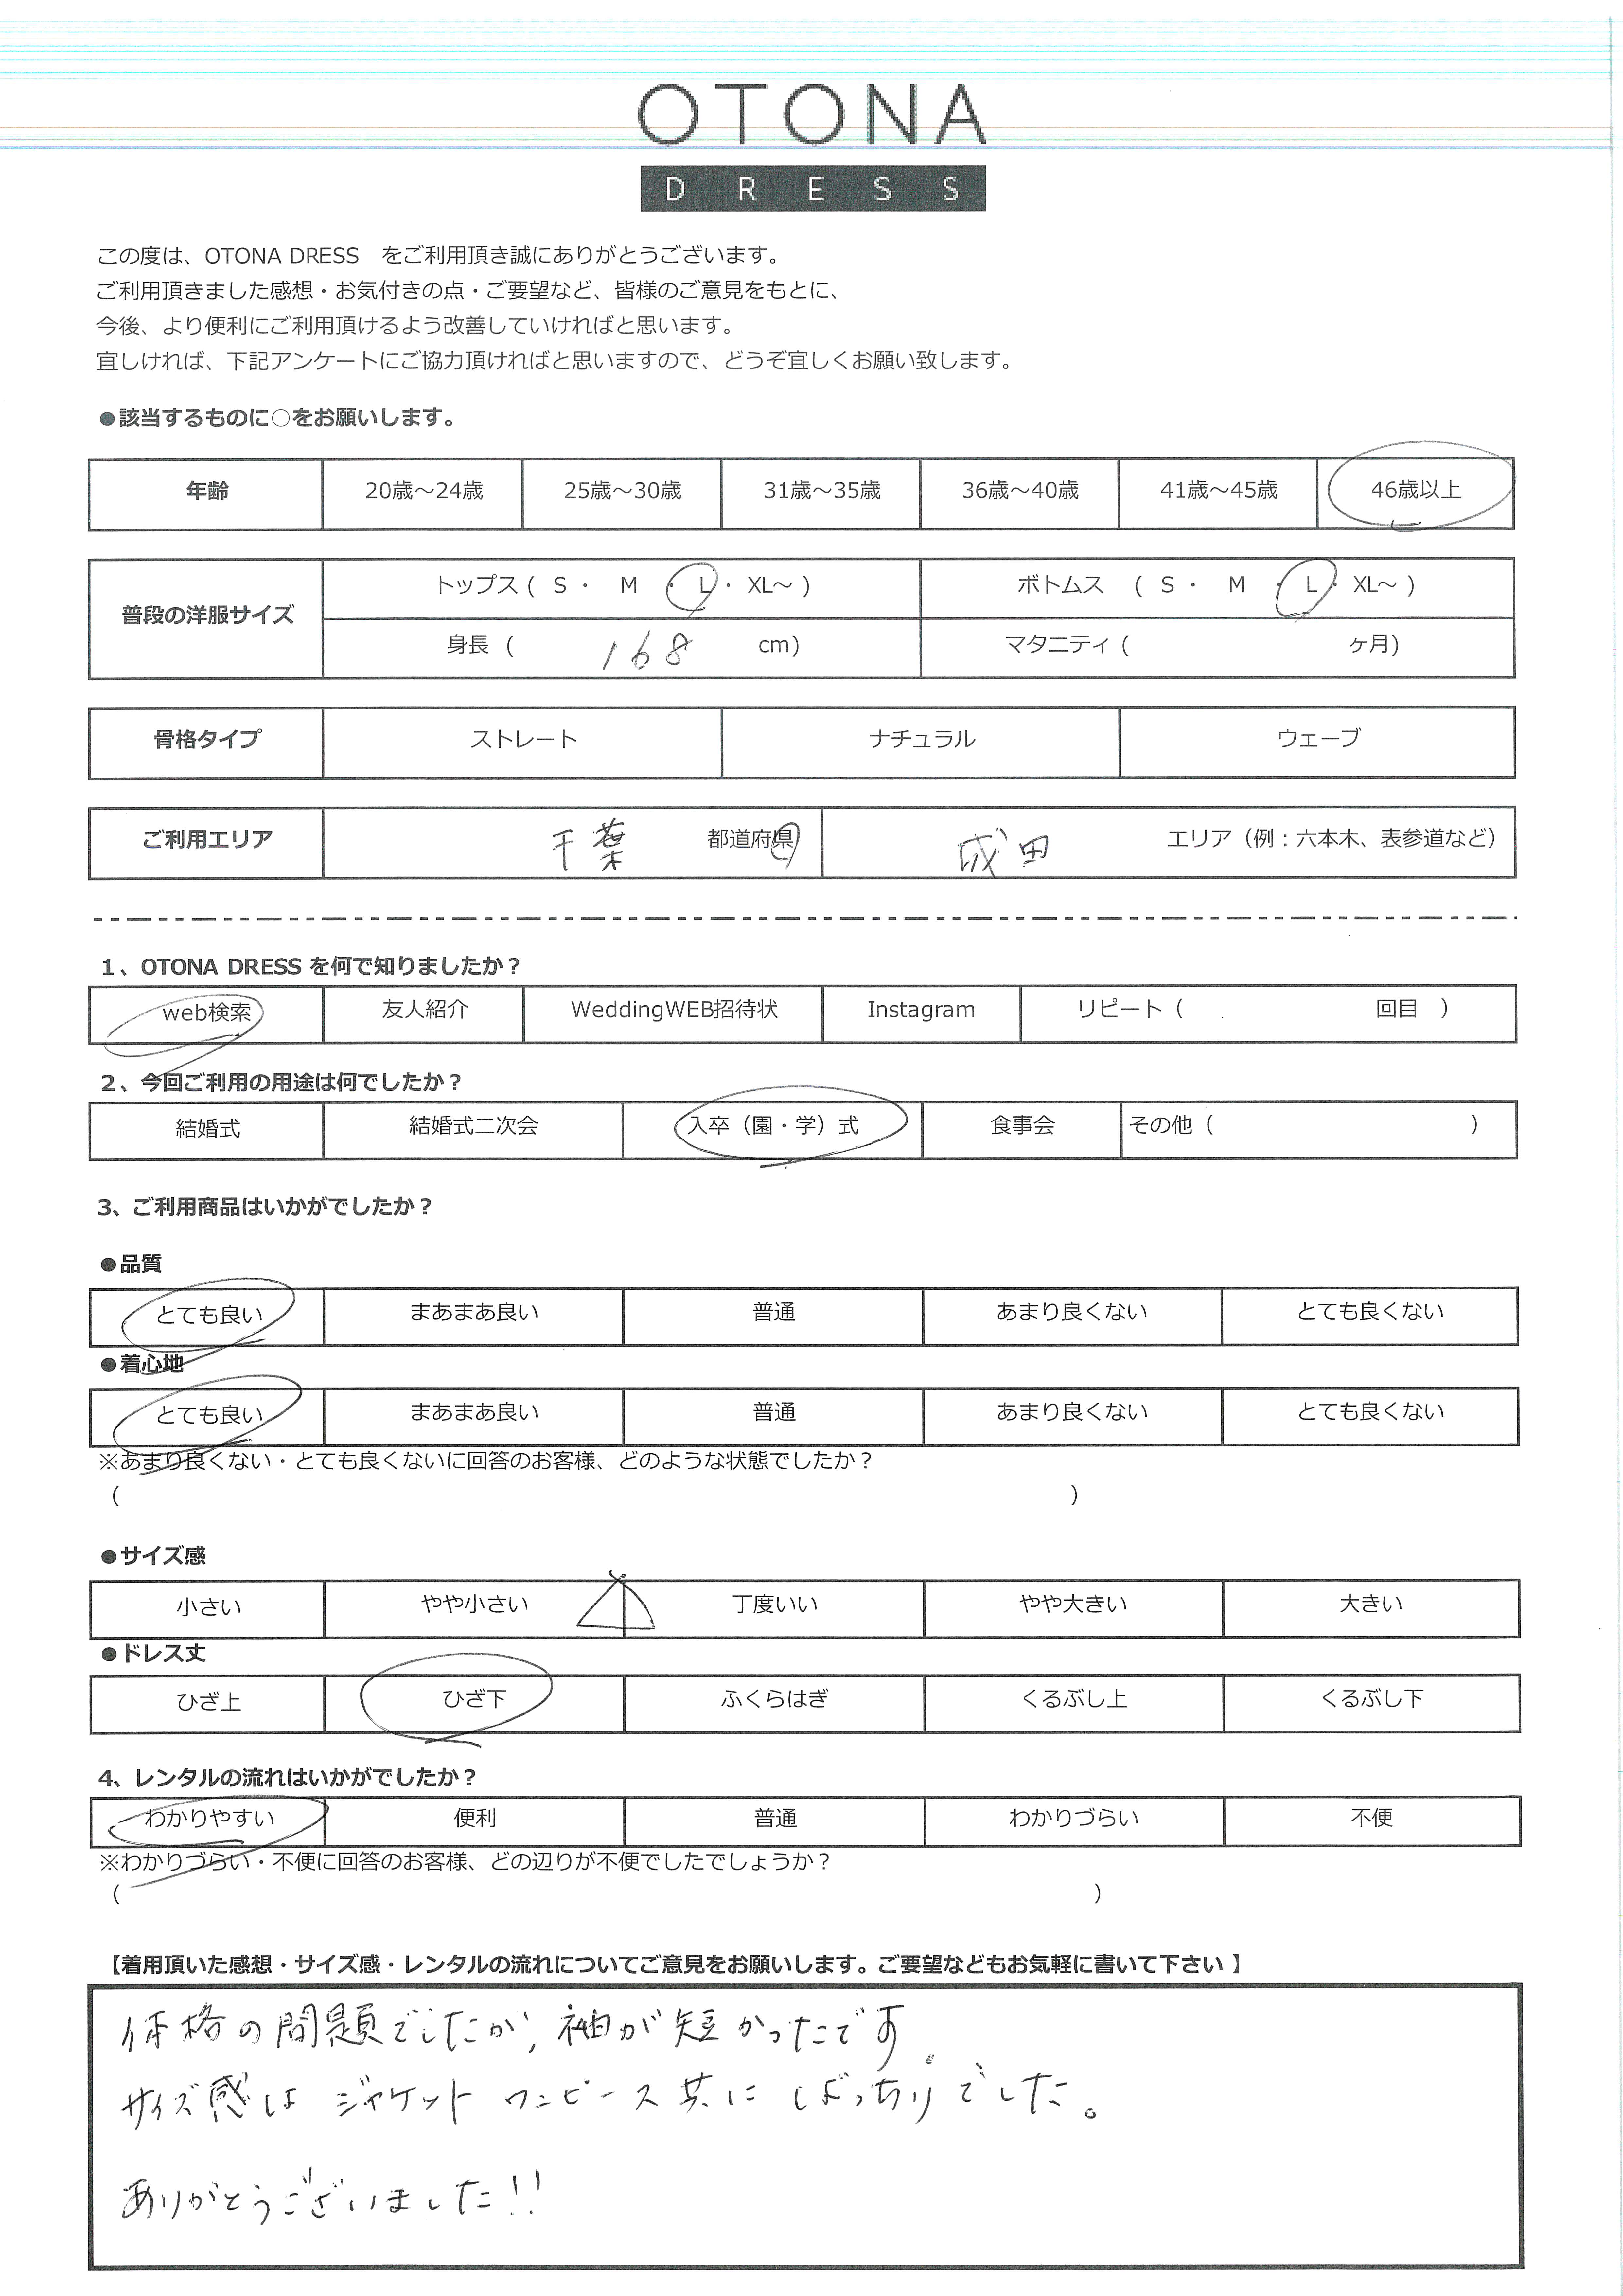 OTONA
DRESS
この度は、OTONA DRESS　をご利用頂き誠にありがとうございます。
ご利用頂きました感想・お気付きの点・ご要望など、皆様のご意見をもとに、
今後、より便利にご利用頂けるよう改善していければと思います。
宜しければ、下記アンケートにご協力頂ければと思いますので、どうぞ宜しくお願い致します。
●該当するものに○をお願いします。
年齢 20歳～24歳 25歳～30歳 31歳～35歳 36歳～40歳 41歳～45歳 46歳以上
普段の洋服サイズ トップス ( S ・ M ・ L ・ XL～ ) ボトムス ( S ・ M ・ L ・ XL～ )
身長 ( 168 cm) マタニティ ( ヶ月)
骨格タイプ ストレート ナチュラル ウェーブ
ご利用エリア 千葉 都道府県 成田 エリア（例：六本木、表参道など）
1、OTONA DRESS を何で知りましたか？
web検索 友人紹介 WeddingWEB招待状 Instagram リピート（ 回目 ）
2、今回ご利用の用途は何でしたか？
結婚式 結婚式二次会 入卒（園・学）式 食事会 その他（ ）
3、ご利用商品はいかがでしたか？
●品質
とても良い まあまあ良い 普通 あまり良くない とても良くない
●着心地
とても良い まあまあ良い 普通 あまり良くない とても良くない
※あまり良くない・とても良くないに回答のお客様、どのような状態でしたか？
（ ）
●サイズ感
小さい やや小さい 丁度いい やや大きい 大きい
●ドレス丈
ひざ上 ひざ下 ふくらはぎ くるぶし上 くるぶし下
4、レンタルの流れはいかがでしたか？
わかりやすい 便利 普通 わかりづらい 不便
※わかりづらい・不便に回答のお客様、どの辺りが不便でしたでしょうか？
（ ）
【着用頂いた感想・サイズ感・レンタルの流れについてご意見をお願いします。ご要望などもお気軽に書いて下さい 】
体格の問題でしたが、袖が短かったです。
サイズ感は ジャケット ワンピース共に ばっちりでした。
ありがとうございました!!